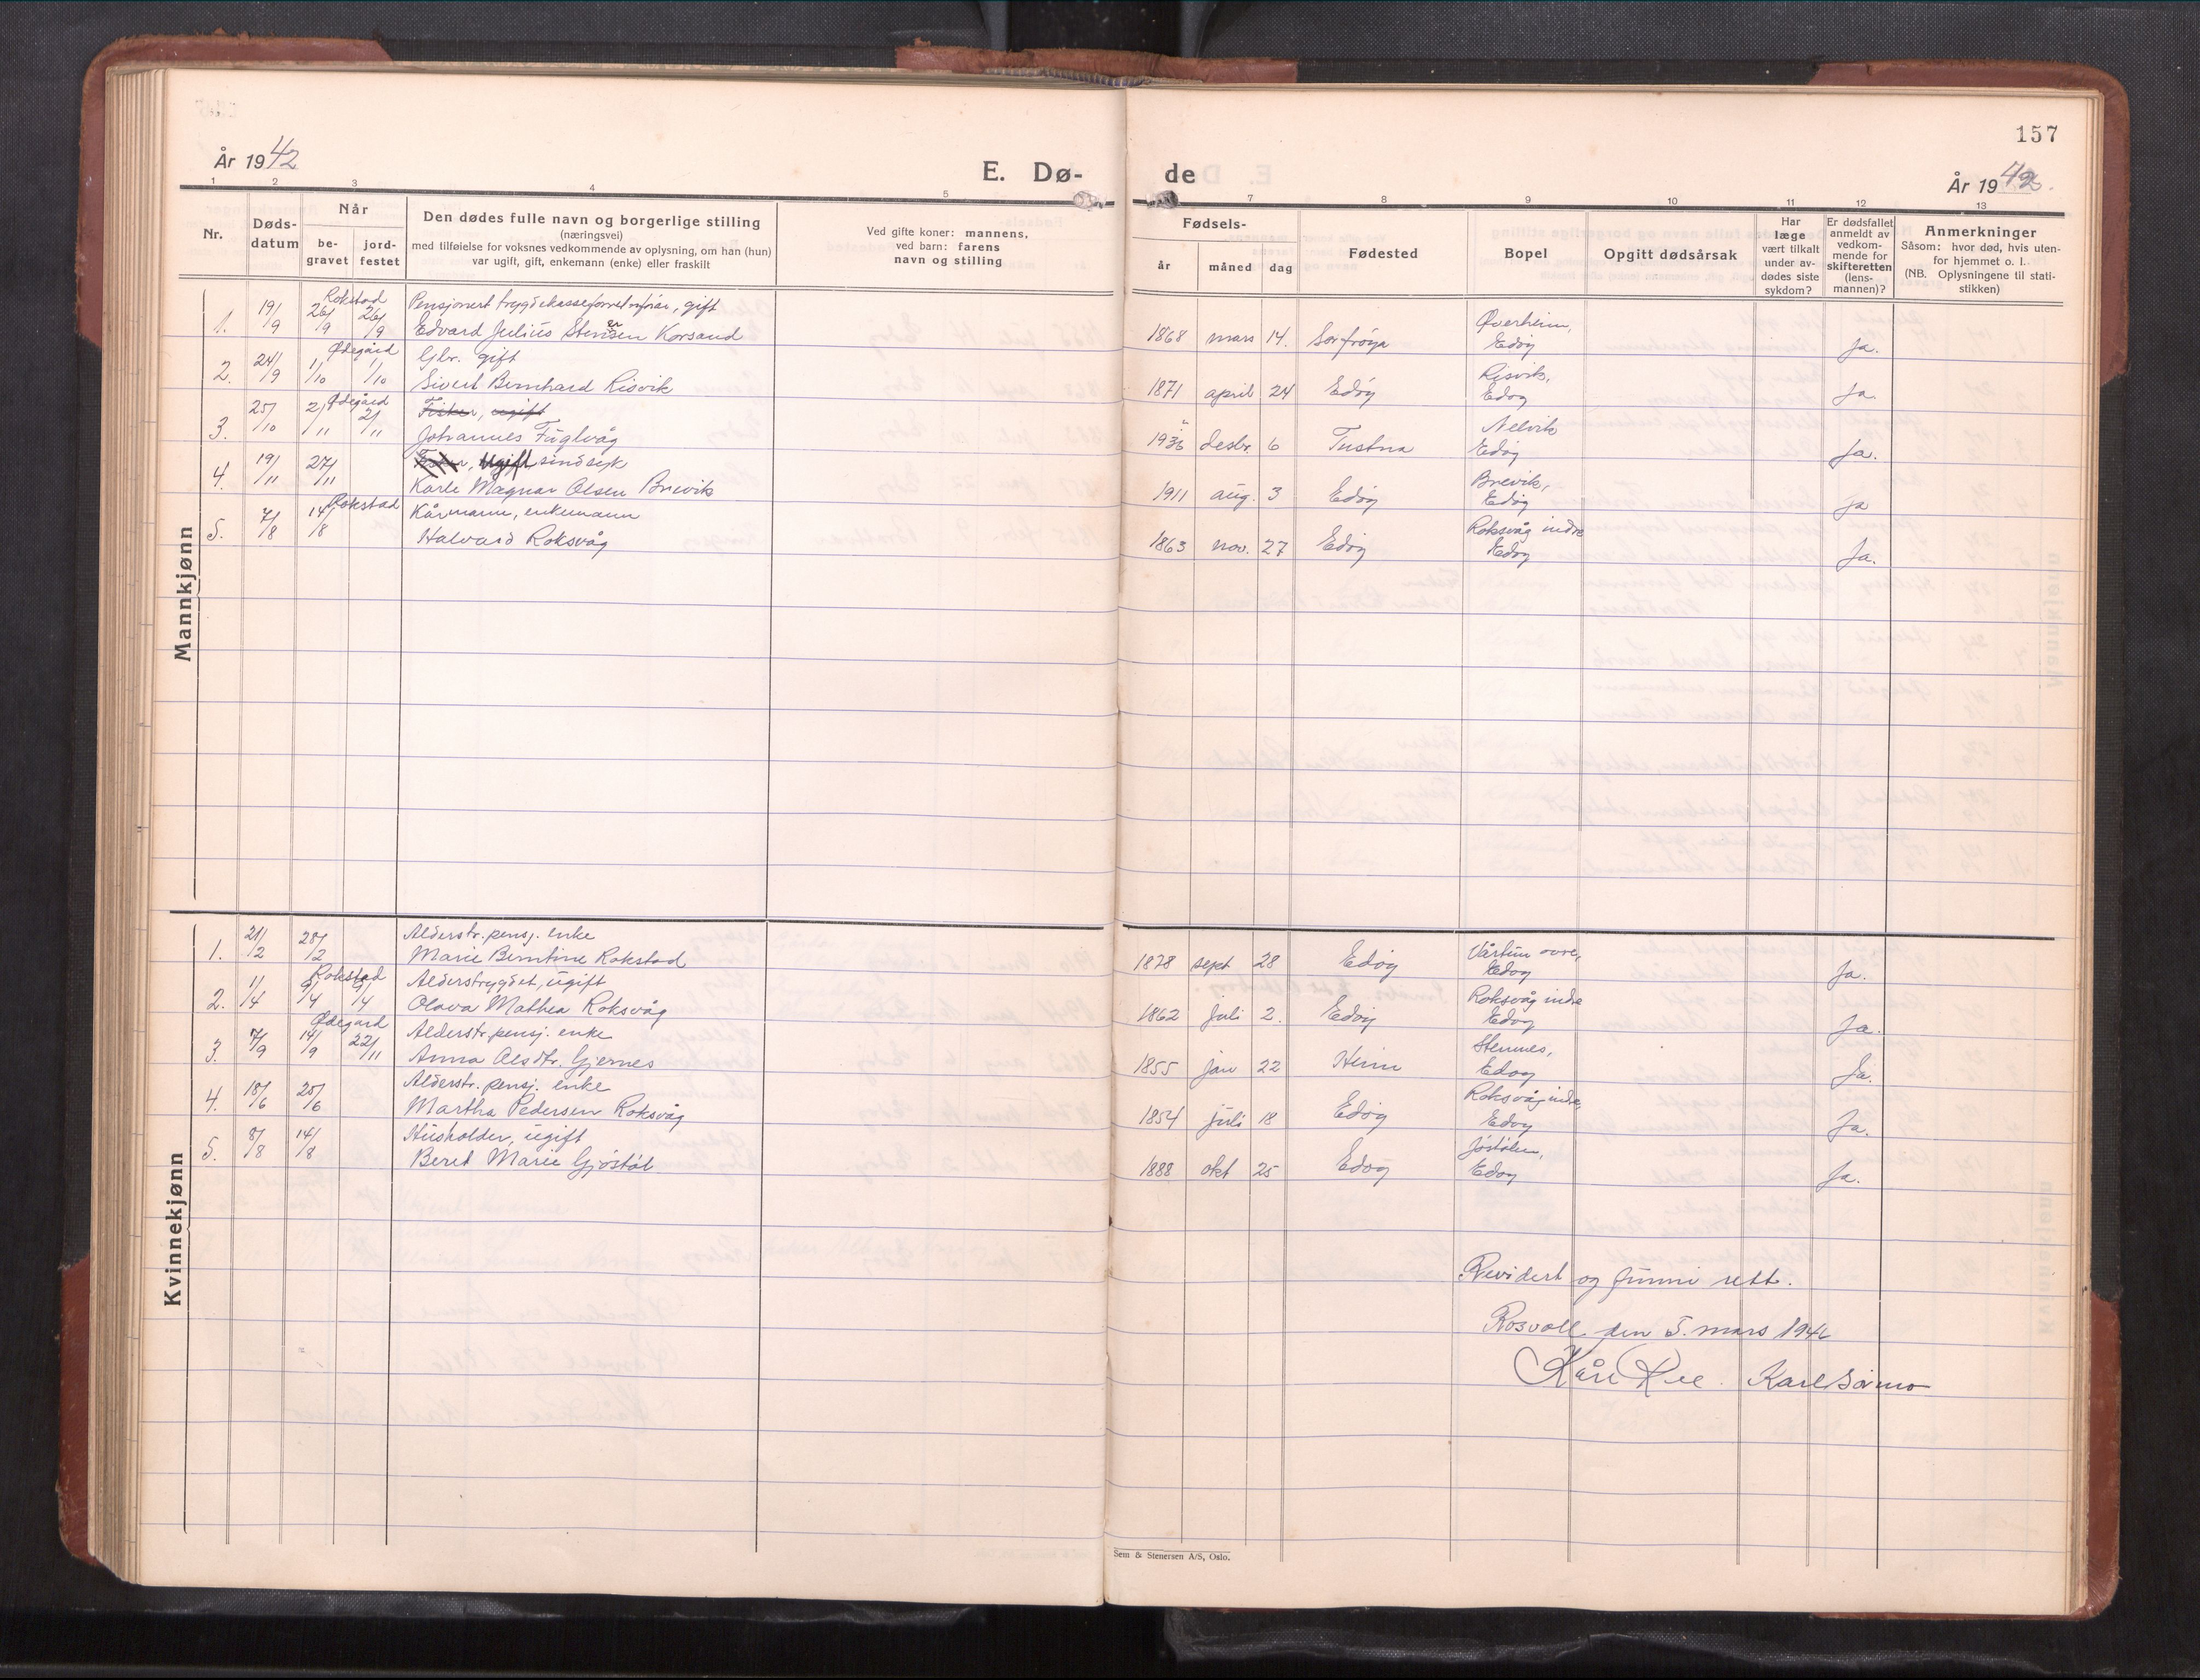 157
År 1942
E. Dø-
de
År 1942.
1 2 3 4 5 7 8 9 10 11 12 13
Nr.
Døds-
datum
Når
be-
gravet
jord-
festet
Den dødes fulle navn og borgerlige stilling
(næringsvei)
med tilføielse for voksnes vedkommende av oplysning, om han (hun)
var ugift, gift, enkemann (enke) eller fraskilt
Ved gifte koner: mannens,
ved barn: farens
navn og stilling
Fødsels-
år
måned
dag
Fødested
Bopel
Opgitt dødsårsak
Har
læge
vært tilkalt
under av-
dødes siste
sykdom?
Er dødsfallet
anmeldt av
vedkom-
mende for
skifteretten
(lens-
mannen)?
Anmerkninger
Såsom: hvor død, hvis uten-
for hjemmet o. l.
(NB. Oplysningene til stati-
stikken)
Mannkjønn
Rokstad Pensjonert trygdekasseforretnfører, gift Øverheim,
1. 19/9 26/9 26/9 Edvard Julius Stensen Korsand 1868 mars 14. Sørfrøya Edøy Ja.
Ødegård Gbr. gift Risvik,
2. 24/9 1/10 1/10 Sivert Bernhard Risvik 1871 april 24 Edøy Edøy Ja.
Ødegård Fisker, ugift Nelvik
3. 25/10 2/11 2/11 Johannes Fuglvåg desbr. 6 Tustna Edøy Ja.
Fisker, Ugift, sindsyk Brevik,
4. 19/11 27/11 Karle Magnar Olsen Brevik 1911 aug. 3 Edøy Edøy ja
Rokstad Kårmann, enkemann Roksvåg indre
5. 7/8 14/8 Halvard Roksvåg 1863 nov. 27 Edøy Edøy Ja.
Kvinnekjønn
Alderstr. pensj. enke
1. 21/2 28/2 Marie Berntine Rokstad 1878 sept 28 Edøy Edøy Ja.
Rokstad Alderstrygdet, ugift Roksvåg indre
2. 1/4 9/4 9/4 Olava Mathea Roksvåg 1862 juli 2. Edøy Edøy Ja.
Ødegård Alderstr. pensj. enke Stennes,
3. 7/9 14/9 22/11 Anna Olsdtr. Gjernes 1855 jan 22 Heim Edøy Ja.
Alderstr. pensj. enke Roksvåg indre,
4. 18/6 25/6 Martha Pedersen Roksvåg 1854 juli 18 Edøy Edøy Ja.
Husholder, ugift Jøstølen,
5. 8/8 14/8 Beret Marie Gjøstøl 1888 okt 25 Edøy Edøy Ja.
Revidert og funni rett.
Rosvoll den 5. mars 1946
Kåre Ree. Karl Sørmo
Sem & Stenersen A/S, Oslo.